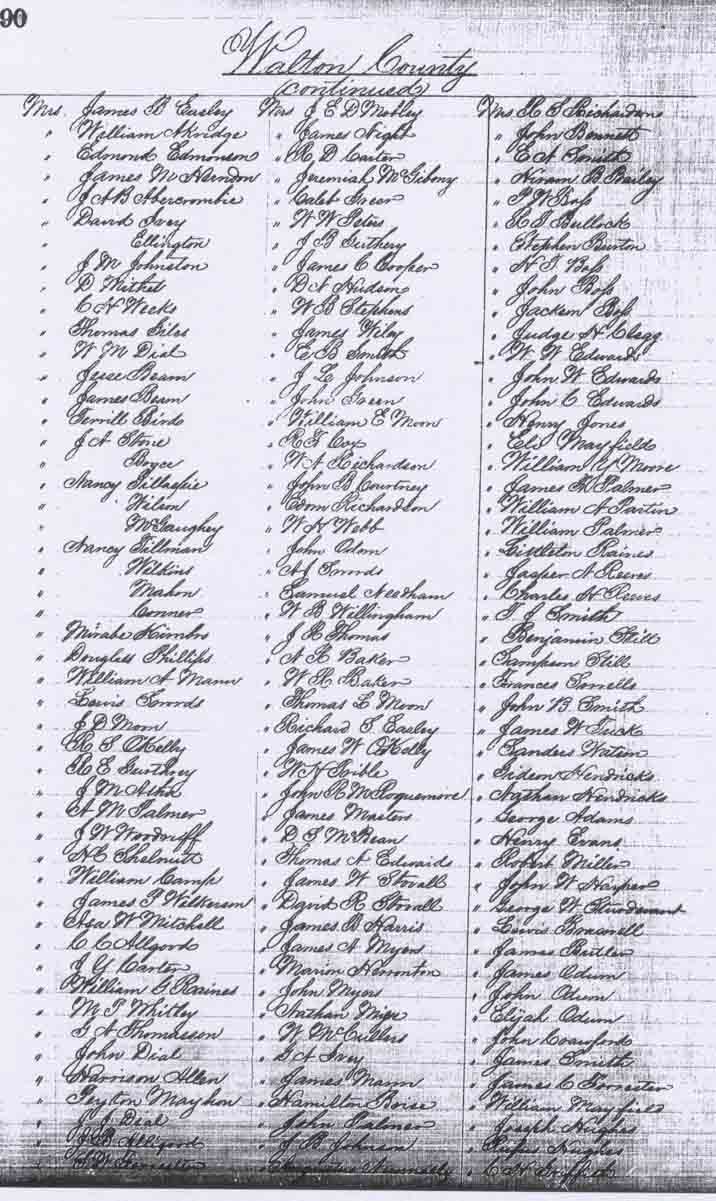 90
Walton County
(continued)
Mrs. James B Easley
" William Akridge
" Edmond Edmonson
" James McHerndon
" J A B Abercrombie
" David Ivey
" Ellington
" J M Johnston
" D
" C H Weeks
" Thomas Giles
" W M Dial
" Jesse Beam
" James Beam
" Terrill Bird
" J A Stone
" Boyce
" Nancy Gillaspie
" Wilson
" McGaughey
" Nancy Tillman
" Wilkins
" Mahon
" Conner
" Kimbro
" Douglass Phillips
" William A Mann
" Lewis
" J D Moon
" R S OKelly
" R E Guthrey
" J M
" A M Palmer
" J W Woodruff
" Shelnutt
" William Camp
" James T Wilkerson
" Asa W Mitchell
" C C Allgood
" J Y Carter
" William G Raines
" M P Whitley
" G A Thomasson
" John Dial
" Harrison Allen
" Peyton Mayhon
" J J Dial
" J B Allgood
" Forrester
Mrs J E D Mobley
" James Night
" R D Carter
" Jeremiah McGibony
" Caleb Greer
" W W Peters
" J B Guthery
" James C Cooper
" D N Hudson
" W B Stephens
" James Wiley
" E B Smith
" J L Johnson
" John Green
" William E Moon
" R F Cox
" W A Richardson
" John B Courtney
" Edom Richardson
" W H Webb
" John Odom
" A J
" Samuel Needham
" W B Willingham
" J R Thomas
" A R Baker
" W R Baker
" Thomas L Moon
" Richard S Easley
" James W OKelly
" W H
" John R McRoquemore
" James Masters
" D S McBean
" Thomas A Edwards
" James W Stovall
" David R Stovall
" James B Harris
" James A Myers
" Marion Herronton
" John Myers
" Nathan
" W McCullers
" G A Ivey
" James Mann
" Hamilton Boise
" John Palmer
" J B Johnson
" Nunnally
Mrs. R S Richardson
" John Bennett
" E A Smith
" Hiram B Bailey
" P W Boss
" R J Bullock
" Stephen Burton
" H T Boss
" John Boss
" Jackson Boss
" Judge H Clegg
" W W Edwards
" John W Edwards
" John C Edwards
" Henry Jones
" Eli Mayfield
" William Y Moore
" James Palmer
" William A Partin
" William Palmer
" Littleton Raines
" Jasper N Reeves
" Charles H Reeves
" T J Smith
" Benjamin Still
" Sampson Still
" Frances Sorrells
" John B Smith
" James W Tuck
" Sanders Watson
" Gideon Hendricks
" Nathan Hendricks
" George Adams
" Henry Evans
" Robert Miller
" John W Harper
" George W Studevant
" Lewis Braswell
" James Butler
" James Odum
" John Odum
" Elijah Odum
" John Crawford
" James Smith
" James C Forrester
" William Mayfield
" Joseph Hughes
" Rufus Hughes
" C H